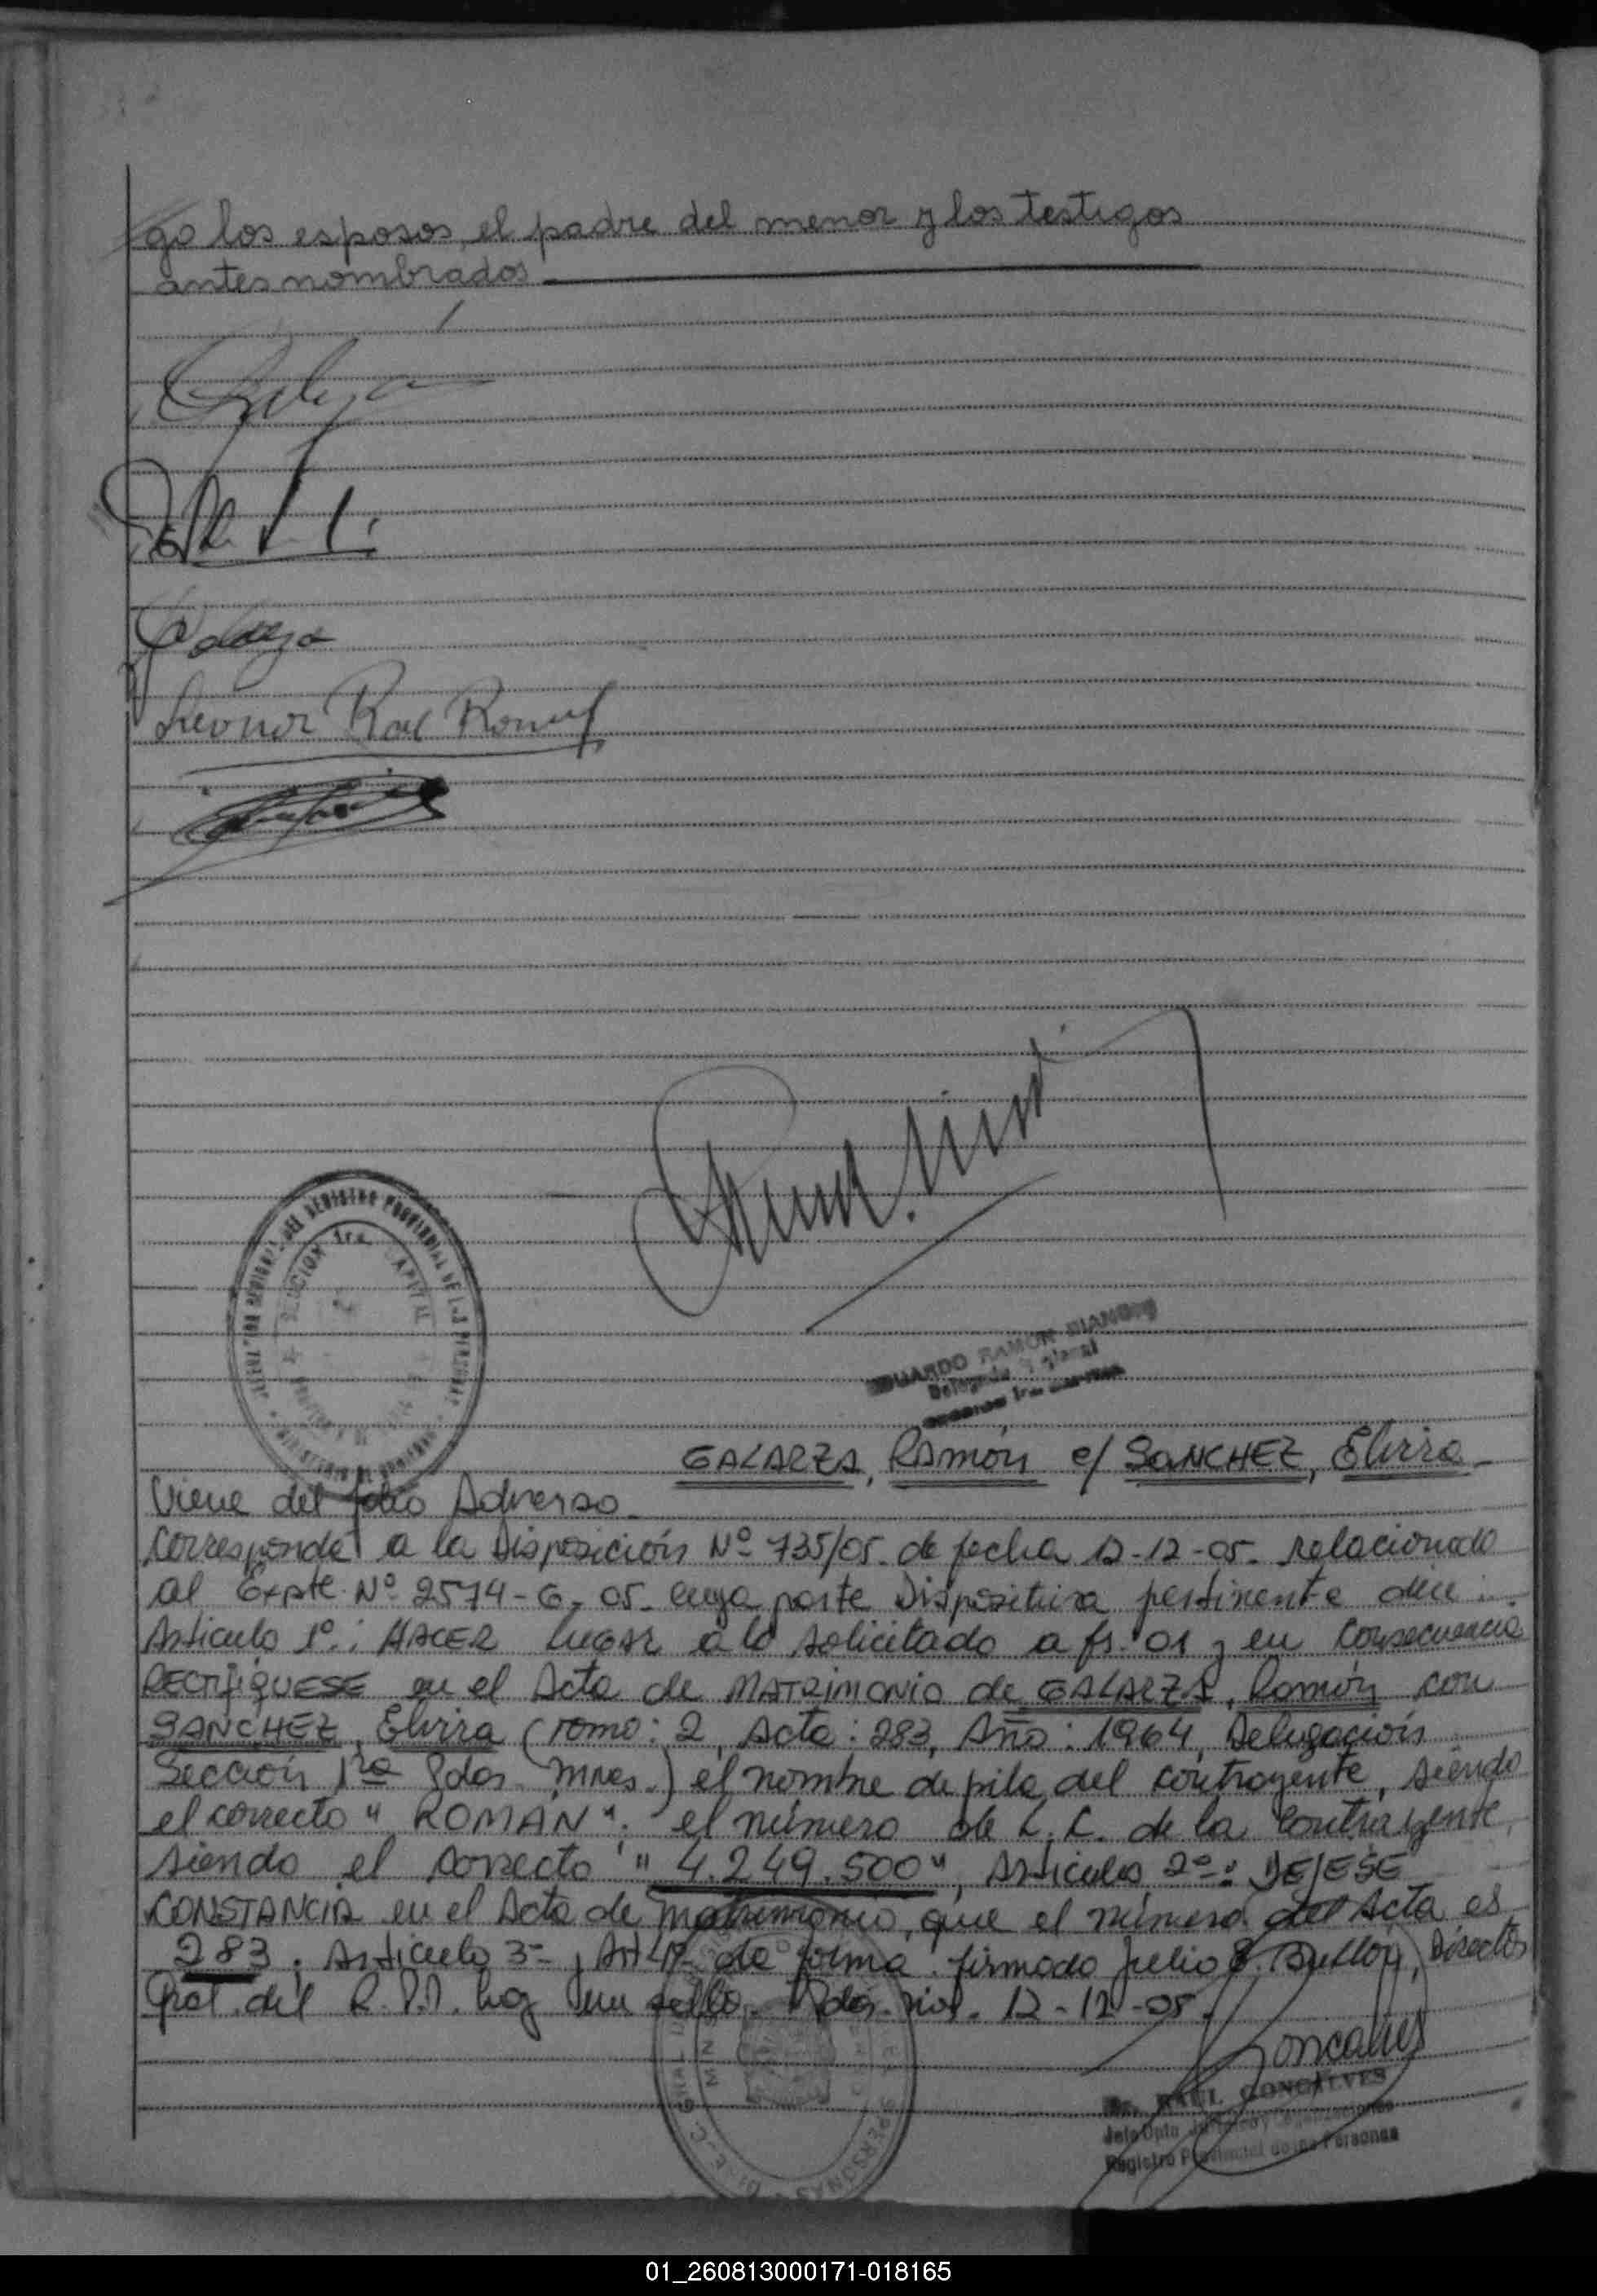 go los esposos, el padre del menor y los testigos
antes nombrados
Leonor
GALARZA, Ramón c/ SANCHEZ, Elvira
Viene del folio Adverso.
Corresponde a la Disposición Nº 735/05. de fecha 12-12-05. relacionado
al Expte. Nº 2574-G-05. cuya parte Dispositiva pertinente dice:
Articulo 1º: HACER LUGAR a lo solicitado a fs. 01 y en Consecuencia
RECTIFIQUESE en el Acta de MATRIMONIO de GALARZA, Ramón con
SANCHEZ, Elvira (Tomo: 2, Acta: 283, Año: 1964, Delegación
Sección 1ra Pdas. Mnes.) el nombre de pila del contrayente, siendo
el correcto "ROMAN". el número de L.C. de la contrayente,
siendo el correcto "4.249.500", Articulo 2º: DEJESE
CONSTANCIA en el Acta de matrimonio, que el número del Acta es
283. Articulo 3º y Art. 4º de forma. firmado Julio Director
Gral. del R.P.P. hay un sello. Pdas. 12-12-05.
Goncalves
EDUARDO RAMON
Delegado
REGISTRO PROVINCIAL DE LAS PERSONAS
SECCION 1ra. CAPITAL
RAUL GONCALVES
Jefe Dpto.
Registro Provincial de las Personas
PERSONAS
01_260813000171-018165